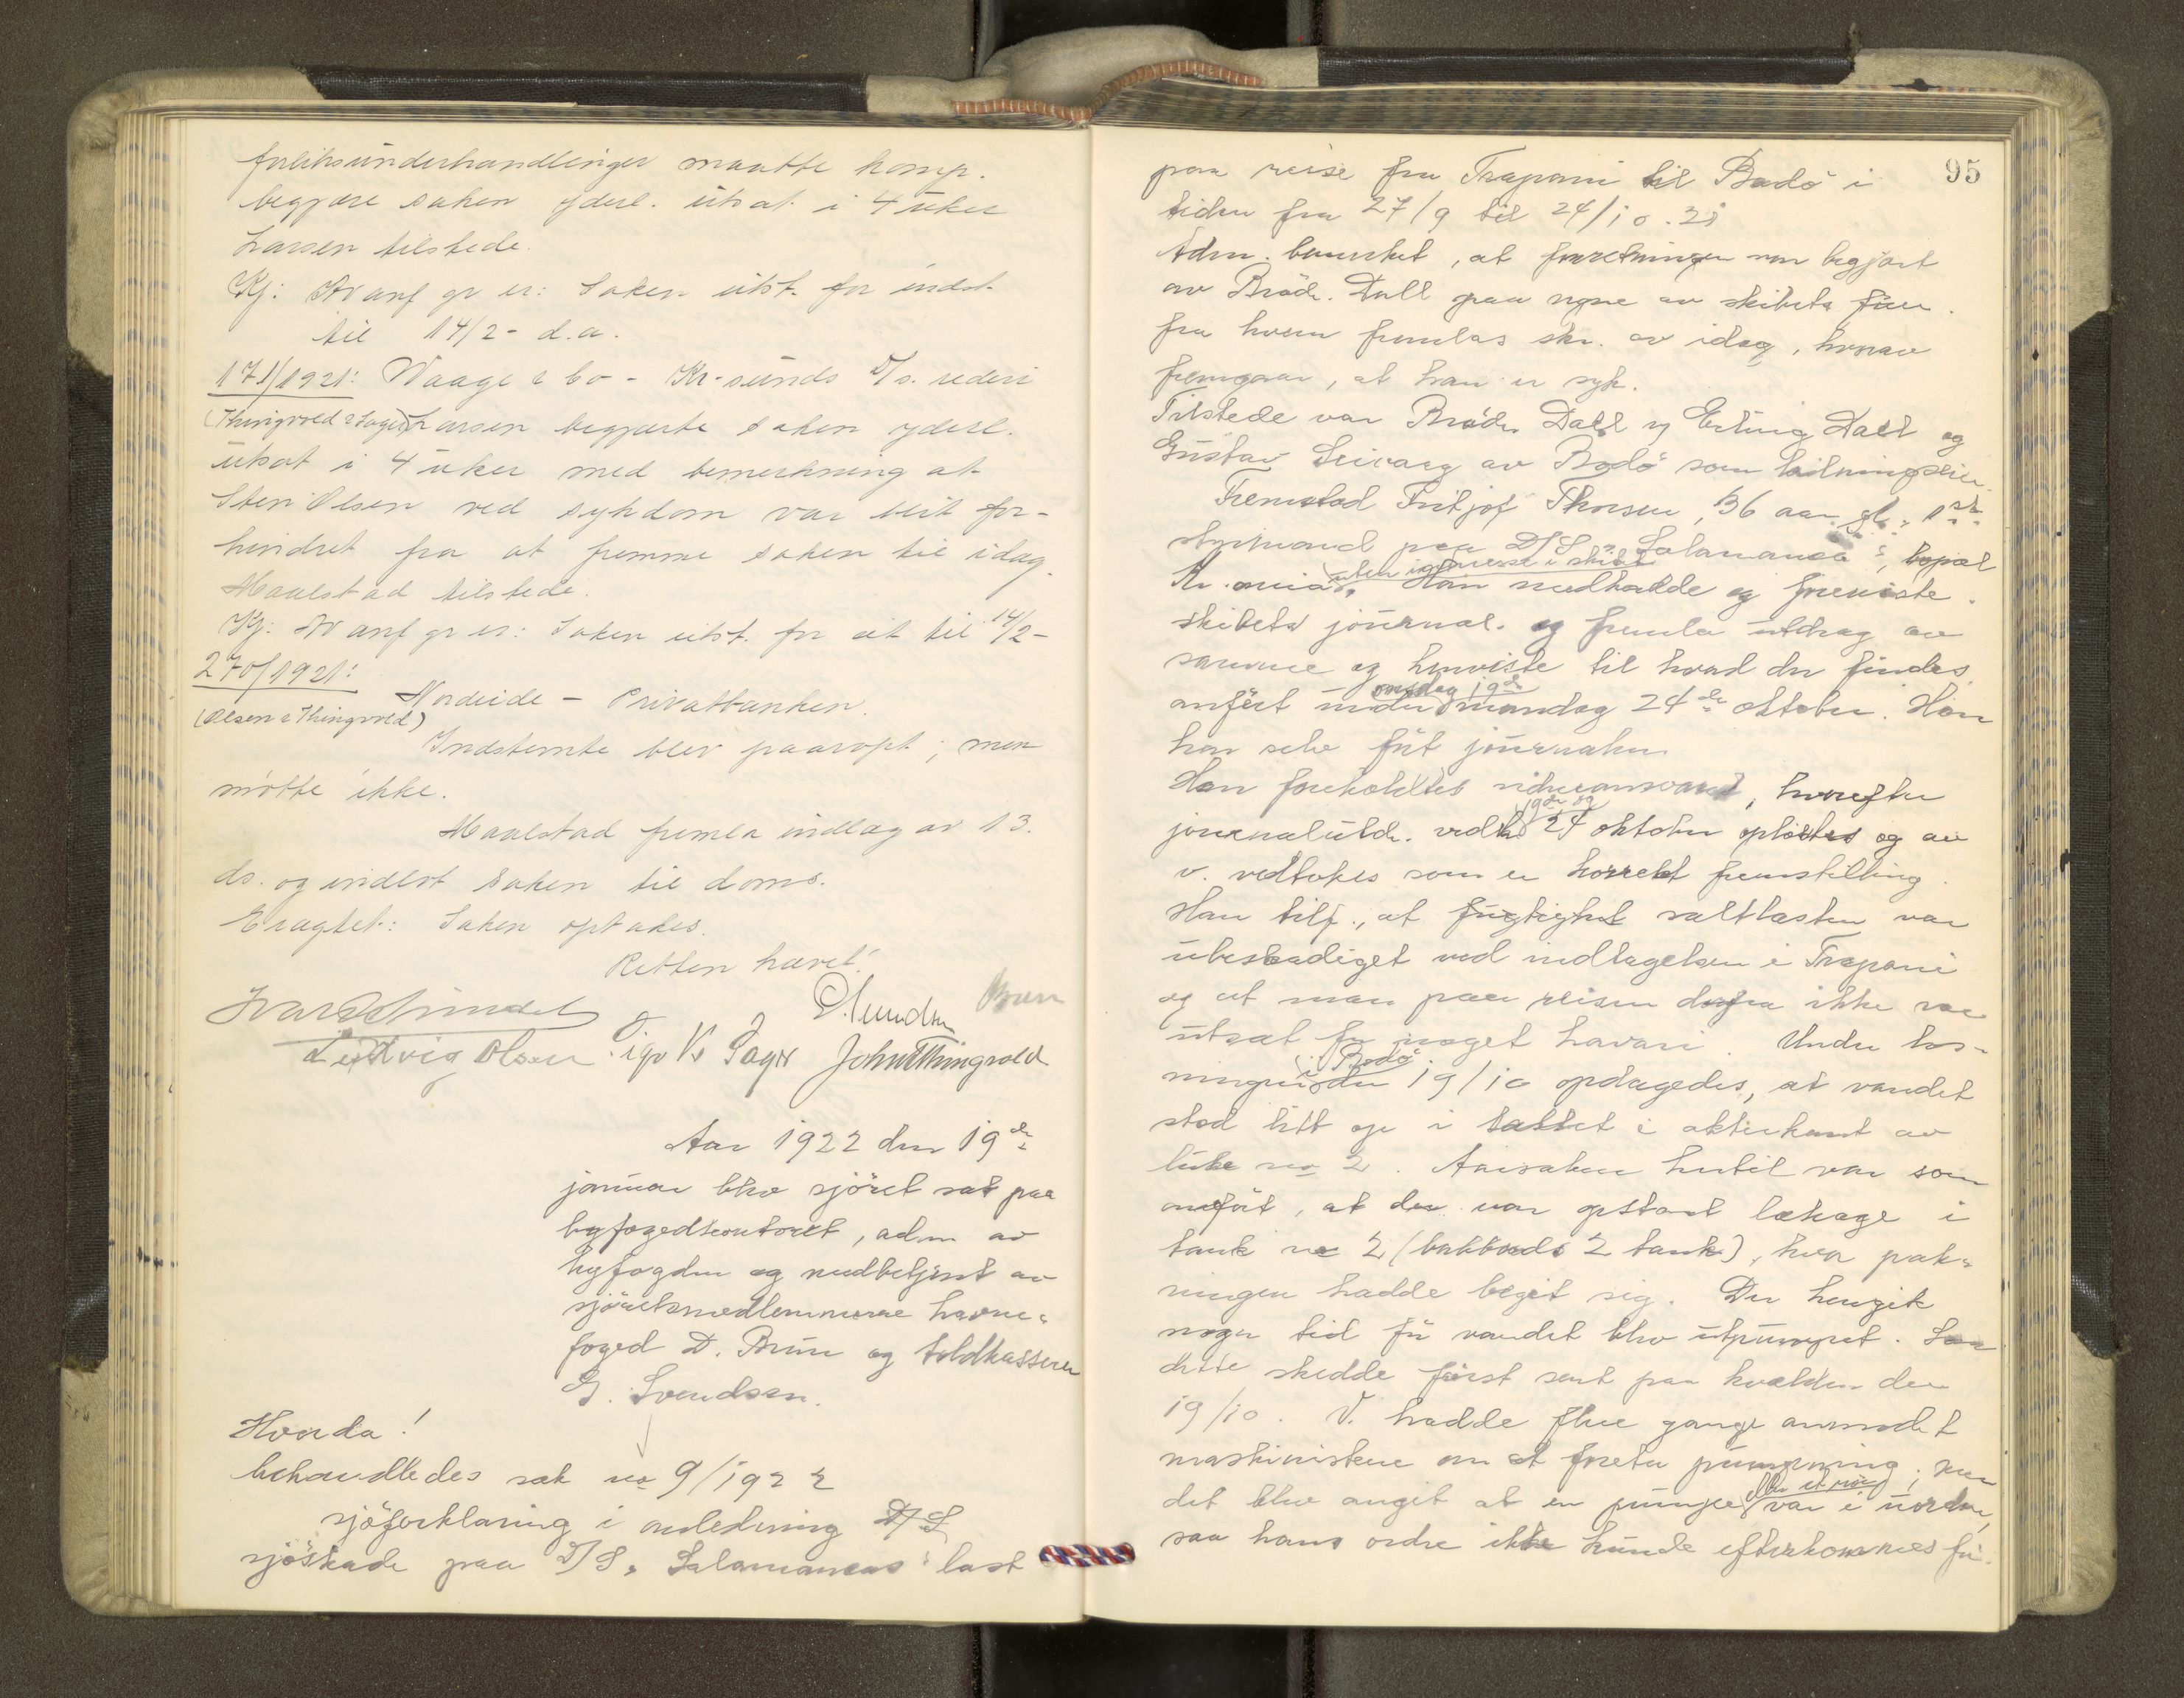 forliksunderhandlinger maatte komp.
begjære saken yderl. utsat i 4 uker
Larsen tilstede.
Kj: Av anf gr er: Saken utst. for indst.
til 14/2 - d.a.
171/1921: Waage & Co - Kr-sunds D/s. rederi
(Thingvold & Sager) Larsen begjærte saken yderl.
utsat i 4 uker med bemerkning at
Sten Olsen ved sykdom var blit for-
hindret fra at fremme saken til idag.
Maalstad tilstede.
Kj: Av anf gr er: Saken utst. for sit til 14/2-
270/1921:
Nordeide - Privatbanken.
(Olsen & Thingvold)
Indstemte blev paaropt, men
møtte ikke.
Maalstad fremla indlag av 13.
ds. og indlot saken til doms.
Eragtet: Saken optakes.
Retten hævet!
Ludvig Olsen Sigv K Sager John Thingvold
Aar 1922 den 19de
januar blev sjöret sat paa
byfogedkontoret, adm av
byfogden og medbetjent av
sjöretsmedlemmerne havne-
foged D. Brun og toldkasserer
G. Svendsen.
Hvorda!
behandledes sak no 9/1922
sjöforklaring i anledning D/S
sjöskade paa D/S "Salamancas" last
95
paa reise fra Trapani til Bodö i
tiden fra 27/9 til 24/10. 21
Adm. bemerket, at forretningen var begjært
av Bröd. Dall paa vegne av skibets förer.
fra hvem fremlas skr. av idag, hvorav
fremgaar, at han er syk.
Tilstede var Brödr. Dall v/ Erling Dall og
Gustav Seivaag av Bodö som
Fremstod Fritjof Thorsen, 36 aar gl., 1ste
styrmand paa D/S "Salamanca", bopæl
uten interesse i skibet
Kr.ania. Han medhadde og foreviste
skibets journal. og fremla utdrag av
samme og henviste til hvad der findes
onsdag 19de
anfört under mandag 24de oktober. Han
har selv fört journalen
Han foreholdtes vidneansvaret, hvorefter
19de og
journalutdr. vedk. 24 oktober oplæstes og av
v. vedtokes som en korrekt fremstilling.
Han tilf., at fugtighet saltlasten var
ubeskadiget ved indtagelsen i Trapani
og at man paa reisen derfra ikke var
utsat for noget havari. Under los-
i Bodö
ningen den 19/10 opdagedes, at vandet
stod litt op i saltet i akterkant av
luke no 2. Aarsaken hertil var som
anfört, at der var opstaat lækage i
tank no 2 (babbords 2 tank), hvor pak-
ningen hadde begit sig. Der hengik
nogen tid för vandet blev utpumpet. Saa
dette skedde först sent paa kvælden den
19/10. V. hadde flere gange anmodet
maskinisten om at foreta pumpning; men
eller et rör
det blev angit at en pumpe var i uorden,
saa hans ordre ikke kunde efterkommes för.